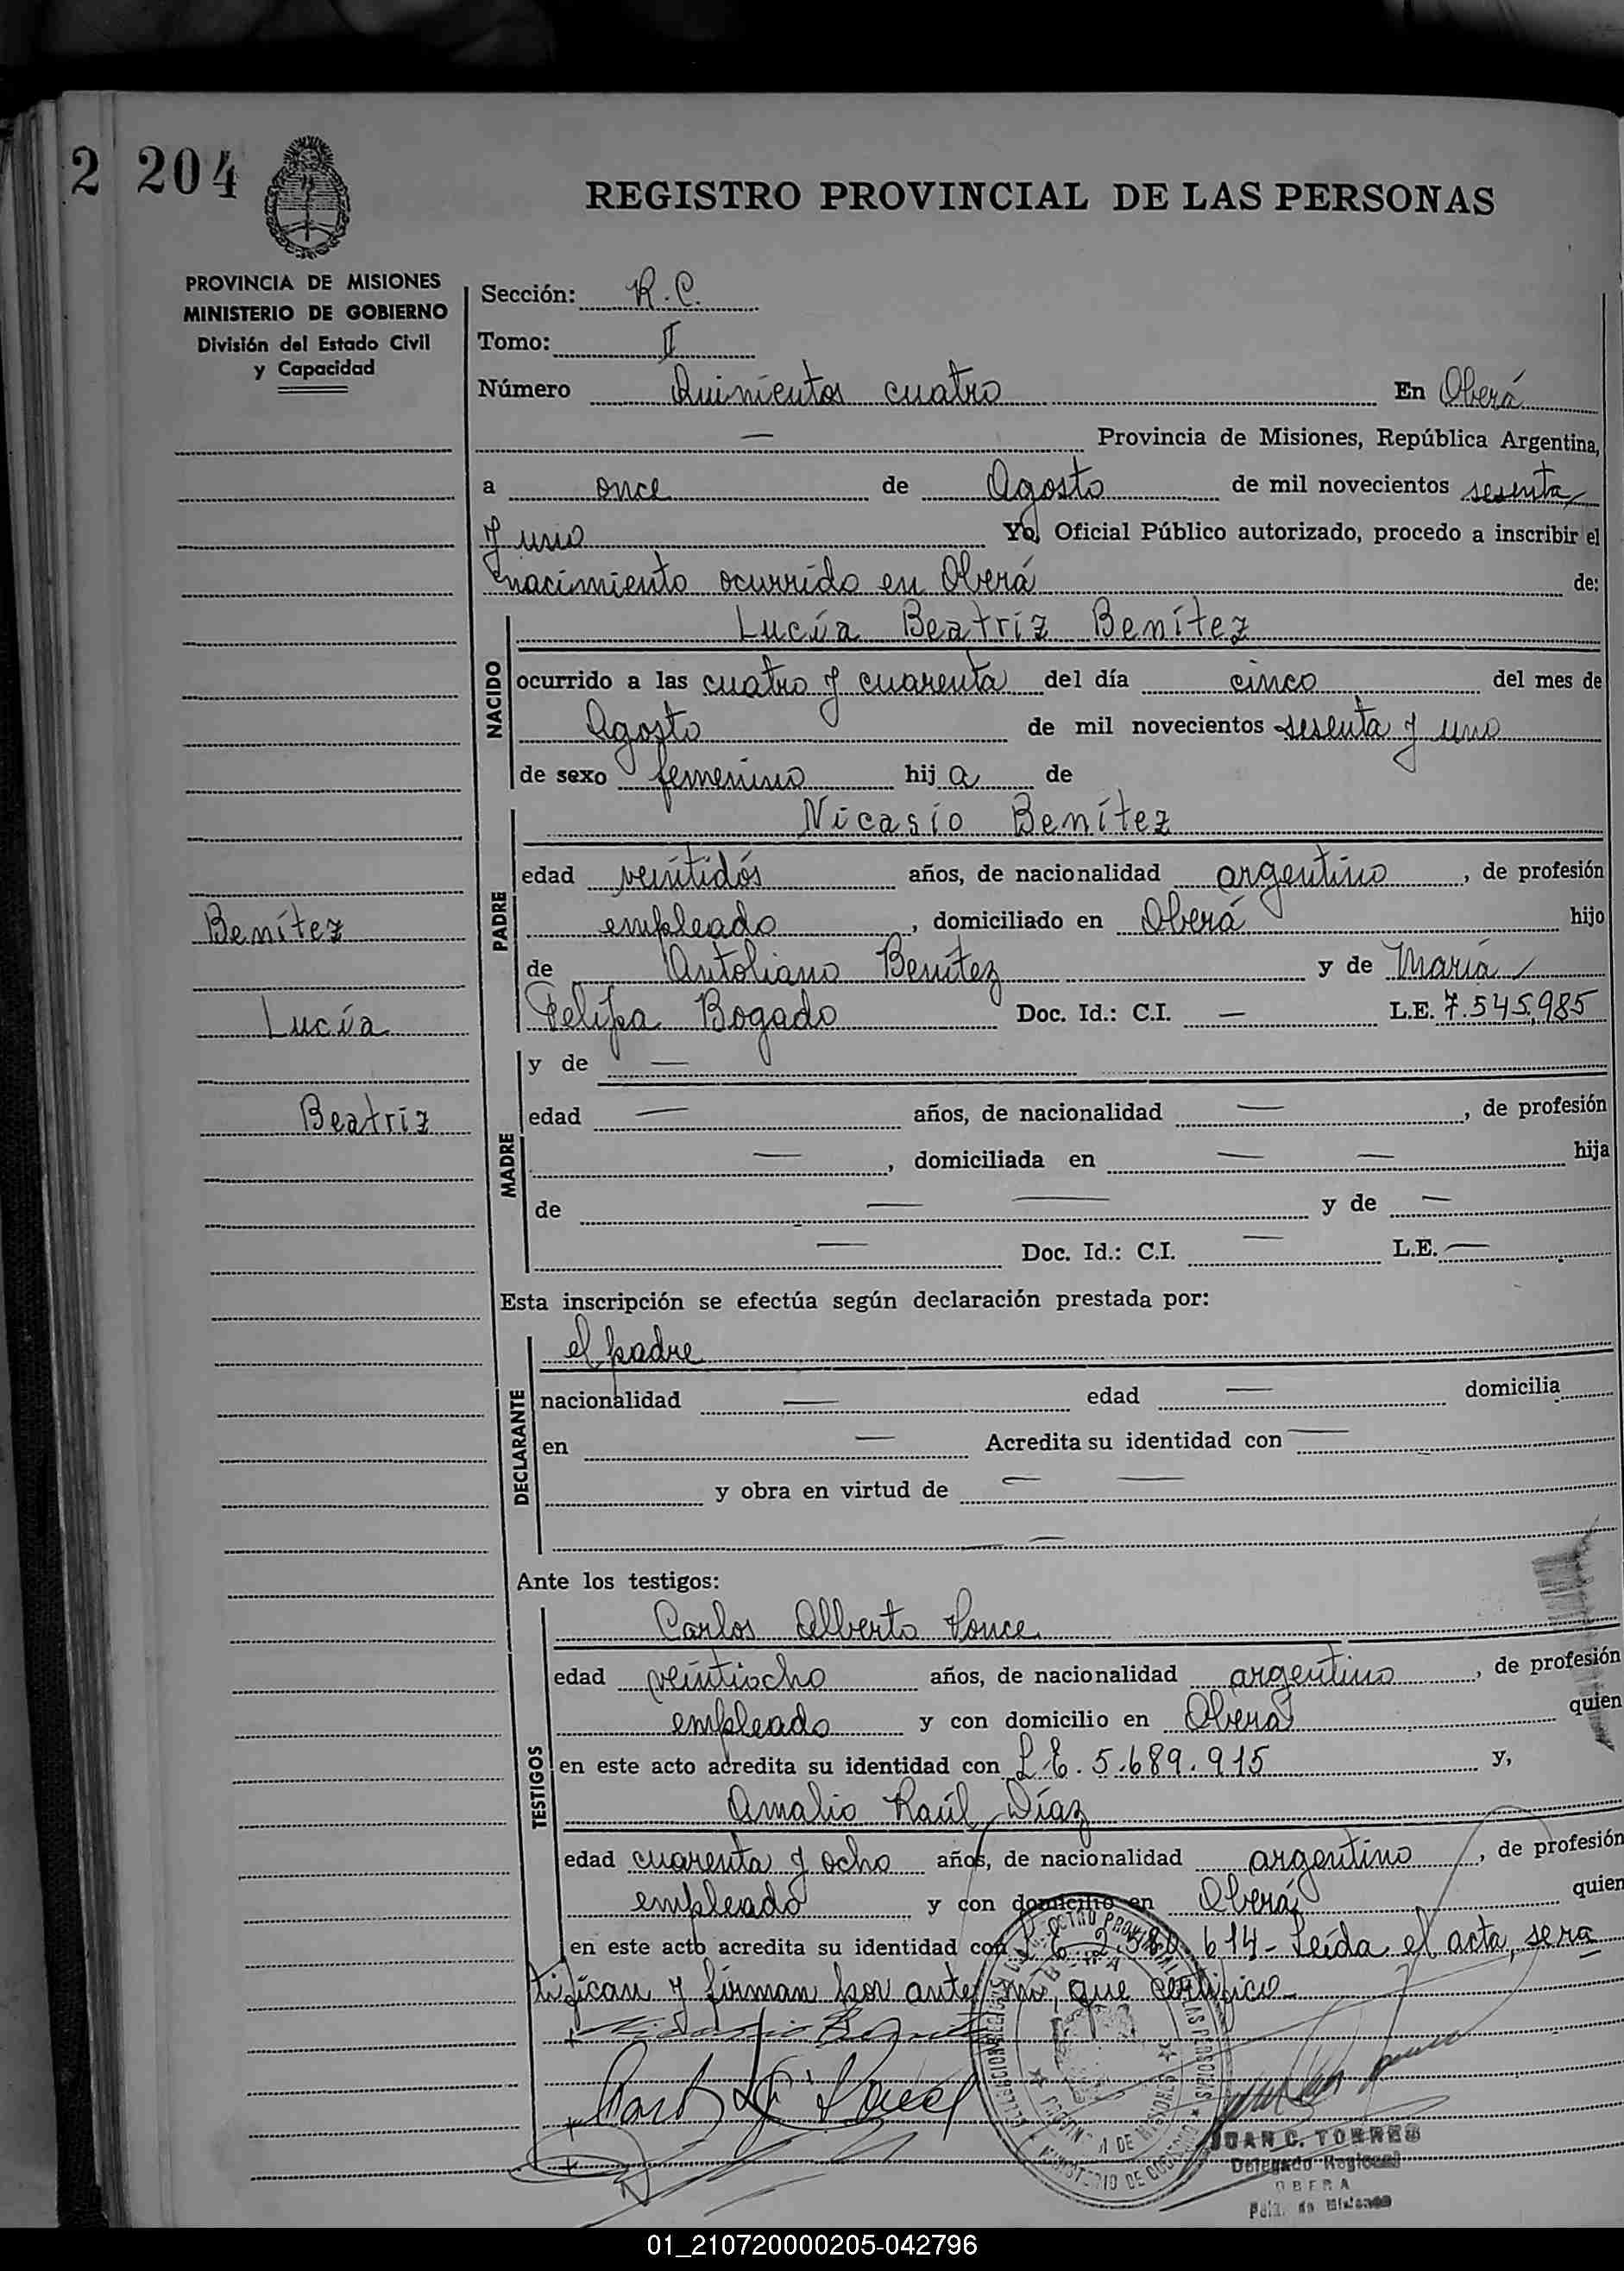 2 204
REGISTRO PROVINCIAL DE LAS PERSONAS
PROVINCIA DE MISIONES
MINISTERIO DE GOBIERNO
División del Estado Civil
y Capacidad
Sección: R. C.
Tomo: II
Número Quinientos cuatro En Oberá
— Provincia de Misiones, República Argentina,
a once de Agosto de mil novecientos sesenta
y uno Yo, Oficial Público autorizado, procedo a inscribir el
nacimiento ocurrido en Oberá de:
NACIDO
Lucía Beatríz Benítez
ocurrido a las cuatro y cuarenta del día cinco del mes de
Agosto de mil novecientos sesenta y uno
de sexo femenino hij a de
PADRE
Nicasio Benítez
edad veintidós años, de nacionalidad argentino, de profesión
empleado, domiciliado en Oberá hijo
de Antoliano Benítez y de María
Felipa Bogado Doc. Id.: C.I. — L.E. 7.545,985
Benítez
Lucía
Beatríz
MADRE
y de —
edad — años, de nacionalidad —, de profesión
—, domiciliada en — — hija
de — — y de —
— Doc. Id.: C.I. — L.E. —
Esta inscripción se efectúa según declaración prestada por:
DECLARANTE
el padre
nacionalidad — edad — domicilia
en — Acredita su identidad con —
y obra en virtud de — —
—
Ante los testigos:
TESTIGOS
Carlos Alberto Ponce
edad veintiocho años, de nacionalidad argentino, de profesión
empleado y con domicilio en Oberá quien
en este acto acredita su identidad con L.E. 5.689.915 y,
Amalio Raúl Díaz
edad cuarenta y ocho años, de nacionalidad argentino, de profesión
empleado y con domicilio en Oberá quien
en este acto acredita su identidad con L E 614- Leída el acta, sera
tifican y firman por ante mí, que certifico-
JUAN C. TORRES
Delegado Regional
OBERA
Pcia. de Misiones
01_210720000205-042796